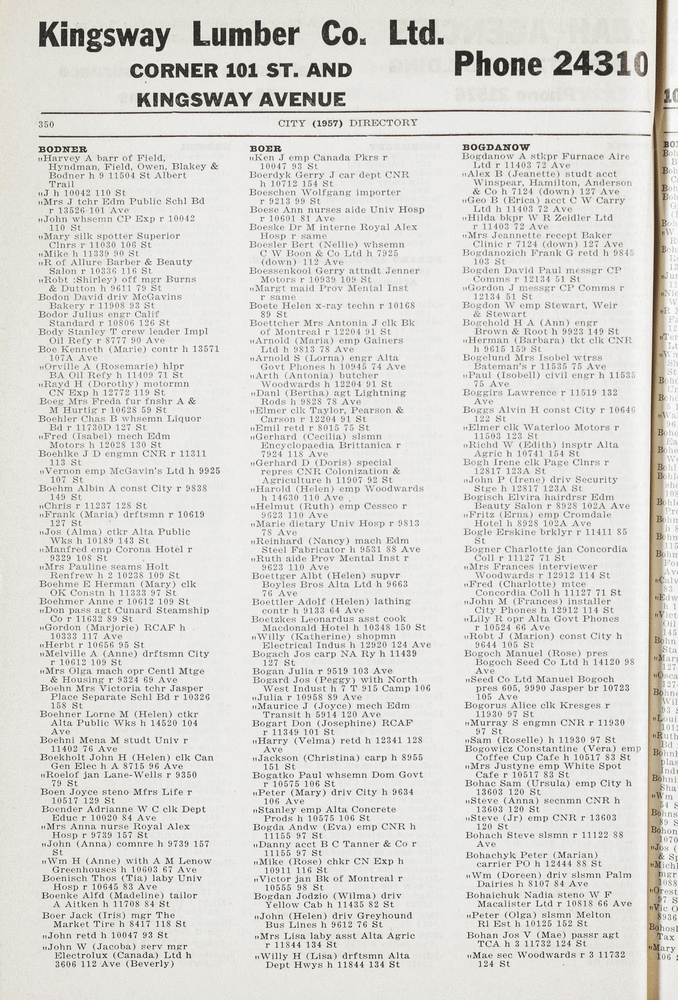 Kingsway Lumber Co. Ltd.
CORNER 101 ST. AND
KINGSWAY AVENUE
Phone 24310
350
CITY (1957) DIRECTORY
BODNER
"Harvey A barr of Field,
Hyndman, Field, Owen, Blakey &
Bodner h 9 11504 St Albert
Trail
"J h 10042 110 St
"Mrs J tchr Edm Public Schl Bd
r 13526 101 Ave
"John whsemn CP Exp r 10042
110 St
"Mary silk spotter Superior
Clnrs r 11030 106 St
"Mike h 11339 90 St
"R of Allure Barber & Beauty
Salon r 10336 116 St
"Robt :Shirley) off mgr Burns
& Dutton h 9611 79 St
Bodon David driv McGavins
Bakery r 11908 93 St
Bodor Julius engr Calif
Standard r 10806 126 St
Body Stanley T crew leader Impl
Oil Refy r 8777 90 Ave
Boe Kenneth (Marie) contr h 13571
107A Ave
"Orville A (Rosemarie) hlpr
BA Oil Refy h 11409 71 St
"Rayd H (Dorothy) motormn
CN Exp h 12772 119 St
Boeg Mrs Freda fur fnshr A &
M Hurtig r 10628 59 St
Boehler Chas B whsemn Liquor
Bd r 11730D 127 St
"Fred (Isabel) mech Edm
Motors h 12028 130 St
Boehlke J D engmn CNR r 11311
113 St
"Vernon emp McGavin's Ltd h 9925
107 St
Boehm Albin A const City r 9838
149 St
"Chris r 11237 128 St
"Frank (Maria) drftsmn r 10619
127 St
"Jos (Alma) ctkr Alta Public
Wks h 10189 143 St
"Manfred emp Corona Hotel r
9329 108 St
"Mrs Pauline seams Holt
Renfrew h 2 10238 109 St
Boehme E Herman (Mary) clk
OK Constn h 11333 97 St
Boehmer Anne r 10612 109 St
"Don pass agt Cunard Steamship
Co r 11632 89 St
"Gordon (Marjorie) RCAF h
10333 117 Ave
"Herbt r 10656 95 St
"Melville A (Anne) drftsmn City
r 10612 109 St
"Mrs Olga mach opr Centl Mtge
& Housing r 9324 69 Ave
Boehn Mrs Victoria tchr Jasper
Place Separate Schl Bd r 10326
158 St
Boehner Lorne M (Helen) ctkr
Alta Public Wks h 14520 104
Ave
Boehni Mena M studt Univ r
11402 76 Ave
Boekholt John H (Helen) clk Can
Gen Elec h A 8715 96 Ave
"Roelof jan Lane-Wells r 9350
79 St
Boen Joyce steno Mfrs Life r
10517 129 St
Boender Adrianne W C clk Dept
Educ r 10020 84 Ave
"Mrs Anna nurse Royal Alex
Hosp r 9739 157 St
"John (Anna) comnre h 9739 157
St
"Wm H (Anne) with A M Lenow
Greenhouses h 10603 67 Ave
Boenisch Thos (Tia) laby Univ
Hosp r 10645 83 Ave
Boenke Alfd (Madeline) tailor
A Aitken h 11708 84 St
Boer Jack (Iris) mgr The
Market Tire h 8417 118 St
"John retd h 10047 93 St
"John W (Jacoba) serv mgr
Electrolux (Canada) Ltd h
3606 112 Ave (Beverly)
BOER
"Ken J emp Canada Pkrs r
10047 93 St
Boerdyk Gerry J car dept CNR
h 10712 154 St
Boeschen Wolfgang importer
r 9213 99 St
Boese Ann nurses aide Univ Hosp
r 10601 81 Ave
Boeske Dr M interne Royal Alex
Hosp r same
Boesler Bert (Nellie) whsemn
C W Boon & Co Ltd h 7925
(down) 112 Ave
Boessenkool Gerry attndt Jenner
Motors r 10939 109 St
"Margt maid Prov Mental Inst
r same
Boete Helen x-ray techn r 10168
89 St
Boettcher Mrs Antonia J clk Bk
of Montreal r 12204 91 St
"Arnold (Maria) emp Gainers
Ltd h 9813 78 Ave
"Arnold S (Lorna) engr Alta
Govt Phones h 10945 74 Ave
"Arth (Antonia) butcher
Woodwards h 12204 91 St
"Danl (Bertha) agt Lightning
Rods h 9828 78 Ave
"Elmer clk Taylor, Pearson &
Carson r 12204 91 St
"Emil retd r 8015 75 St
"Gerhard (Cecilia) slsmn
Encyclopaedia Brittanica r
7924 118 Ave
"Gerhard D (Doris) special
repres CNR Colonization &
Agriculture h 11907 92 St
"Harold (Helen) emp Woodwards
h 14630 110 Ave
"Helmut (Ruth) emp Cessco r
9623 110 Ave
"Marie dietary Univ Hosp r 9813
78 Ave
"Reinhard (Nancy) mach Edm
Steel Fabricator h 9531 88 Ave
"Ruth aide Prov Mental Inst r
9623 110 Ave
Boettger Albt (Helen) supvr
Boyles Bros Alta Ltd h 9663
76 Ave
Boettler Adolf (Helen) lathing
contr h 9133 64 Ave
Boetzkes Leonardus asst cook
Macdonald Hotel h 10348 150 St
"Willy (Katherine) shopmn
Electrical Indus h 12920 124 Ave
Bogach Jos carp NA Ry h 11439
127 St
Bogan Julia r 9519 103 Ave
Bogard Jos (Peggy) with North
West Indust h 7 T 915 Camp 106
"Julia r 10958 89 Ave
"Maurice J (Joyce) mech Edm
Transit h 5914 120 Ave
Bogart Don (Josephine) RCAF
r 11349 101 St
"Harry (Velma) retd h 12341 128
Ave
"Jackson (Christina) carp h 8955
151 St
Bogatko Paul whsemn Dom Govt
r 10575 106 St
"Peter (Mary) driv City h 9634
106 Ave
"Stanley emp Alta Concrete
Prods h 10575 106 St
Bogda Andw (Eva) emp CNR h
11155 97 St
"Danny acct B C Tanner & Co r
11155 97 St
"Mike (Rose) chkr CN Exp h
10911 116 St
"Victor jan Bk of Montreal r
10555 98 St
Bogdan Jodzio (Wilma) driv
Yellow Cab h 11435 82 St
"John (Helen) driv Greyhound
Bus Lines h 9612 76 St
"Mrs Lisa laby asst Alta Agric
r 11844 134 St
"Willy H (Lisa) drftsmn Alta
Dept Hwys h 11844 134 St
BOGDANOW
Bogdanow A stkpr Furnace Aire
Ltd r 11403 72 Ave
"Alex B (Jeanette) studt acct
Winspear, Hamilton, Anderson
& Co h 7124 (down) 127 Ave
"Geo B (Erica) acct C W Carry
Ltd h 11403 72 Ave
"Hilda bkpr W R Zeidler Ltd
r 11403 72 Ave
"Mrs Jeannette recept Baker
Clinic r 7124 (down) 127 Ave
Bogdanozich Frank G retd h 9845
103 St
Bogden David Paul messgr CP
Comms r 12134 51 St
"Gordon J messgr CP Comms r
12134 51 St
Bogdon W emp Stewart, Weir
& Stewart
Bogehold H A (Ann) engr
Brown & Root h 9923 149 St
"Herman (Barbara) tkt clk CNR
h 9615 159 St
Bogelund Mrs Isobel wtrss
Bateman's r 11535 75 Ave
"Paul (Isobell) civil engr h 11535
75 Ave
Boggiris Lawrence r 11519 132
Ave
Boggs Alvin H const City r 10646
122 St
"Elmer clk Waterloo Motors r
11503 123 St
"Richd W (Edith) insptr Alta
Agric h 10741 154 St
Bogh Irene clk Page Clnrs r
12817 123A St
"John P (Irene) driv Security
Stge h 12817 123A St
Bogisch Elvira hairdrsr Edm
Beauty Salon r 8928 102A Ave
"Fritz (Erna) emp Cromdale
Hotel h 8928 102A Ave
Bogle Erskine brklyr r 11411 85
St
Bogner Charlotte jan Concordia
Coll r 11127 71 St
"Mrs Frances interviewer
Woodwards r 12912 114 St
"Fred (Charlotte) mtce
Concordia Coll h 11127 71 St
"John M (Frances) installer
City Phones h 12912 114 St
"Lily R opr Alta Govt Phones
r 10524 66 Ave
"Robt J (Marion) const City h
9644 105 St
Bogoch Manuel (Rose) pres
Bogoch Seed Co Ltd h 14120 98
Ave
"Seed Co Ltd Manuel Bogoch
pres 605, 9990 Jasper br 10723
105 Ave
Bogorus Alice clk Kresges r
11930 97 St
"Murray S engmn CNR r 11930
97 St
"Sam (Roselle) h 11930 97 St
Bogowicz Constantine (Vera) emp
Coffee Cup Cafe h 10517 83 St
"Mrs Justyne emp White Spot
Cafe r 10517 83 St
Bohac Sam (Ursula) emp City h
13603 120 St
"Steve (Anna) secnmn CNR h
13603 120 St
"Steve (Jr) emp CNR r 13603
120 St
Bohach Steve slsmn r 11122 88
Ave
Bohachyk Peter (Marian)
carrier PO h 12444 88 St
"Wm (Doreen) driv slsmn Palm
Dairies h 8107 84 Ave
Bohaichuk Nadia steno W F
Macalister Ltd r 10818 66 Ave
"Peter (Olga) slsmn Melton
Rl Est h 10125 152 St
Bohan Jos V (Mae) passr agt
TCA h 3 11732 124 St
"Mae sec Woodwards r 3 11732
124 St